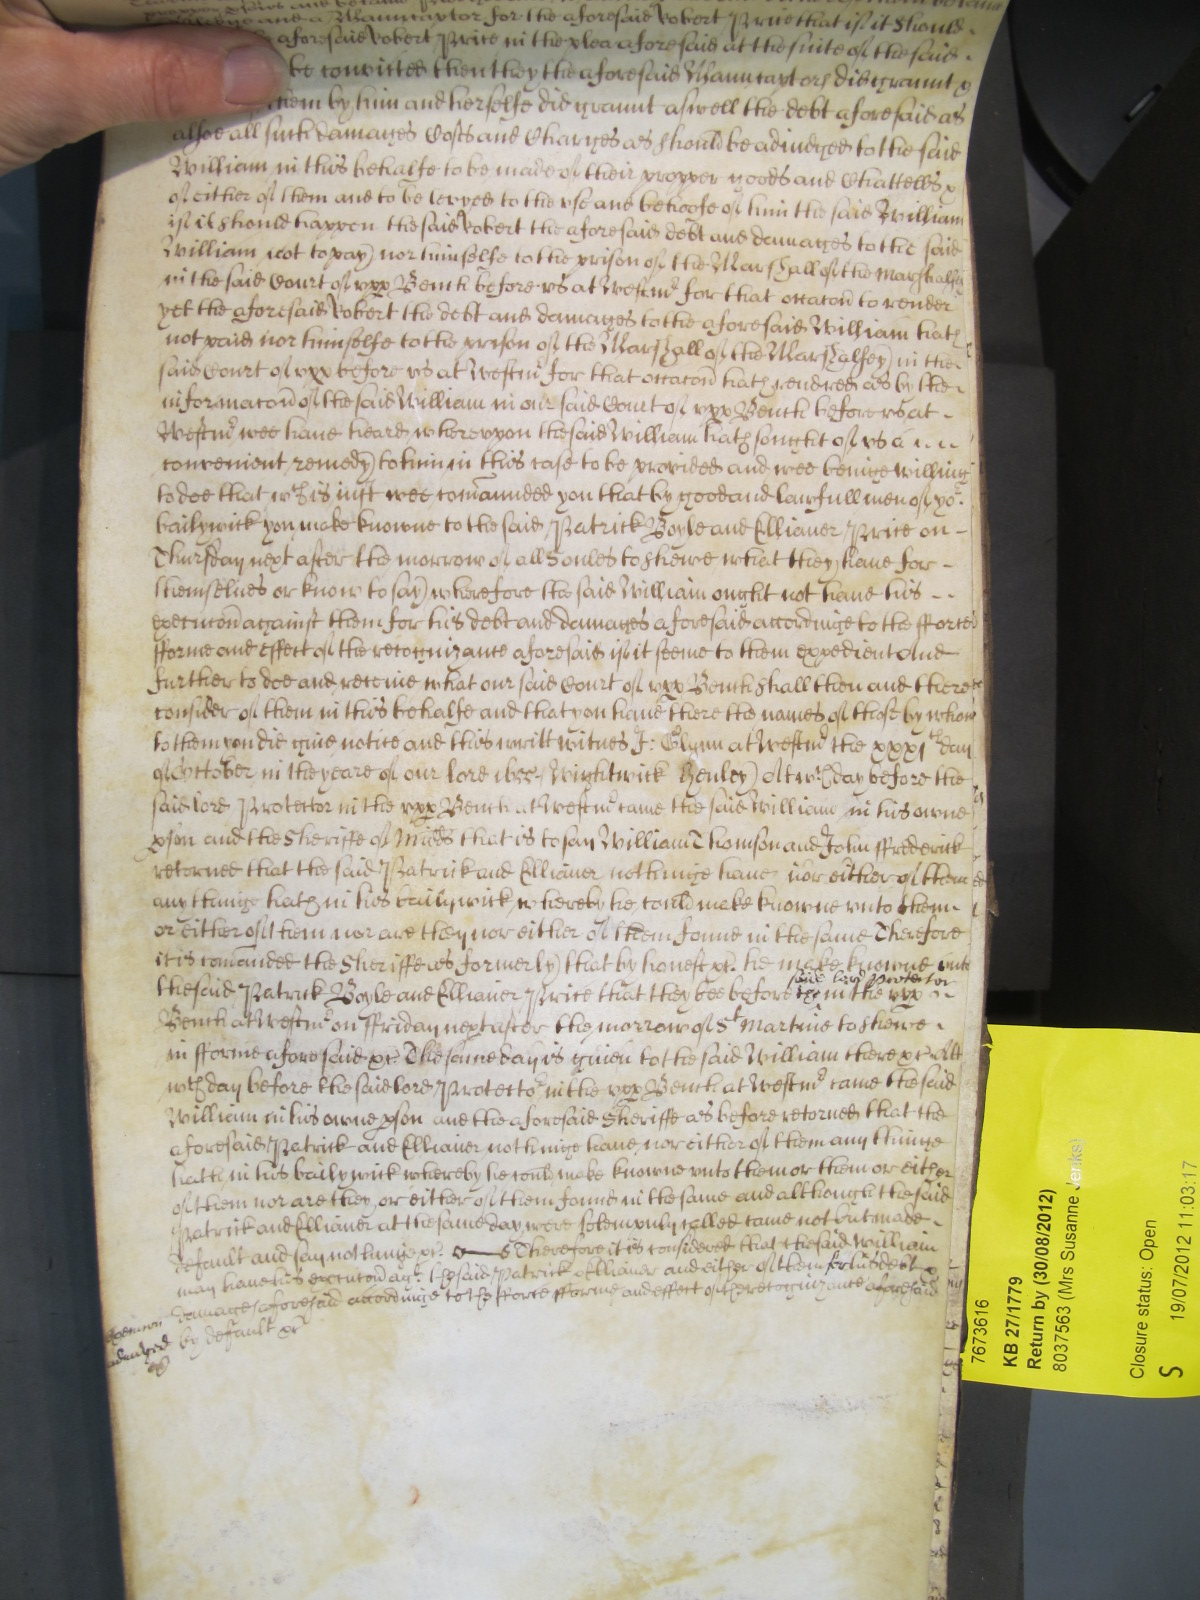 and a Manucaptor for the aforesaid Robert Price that if it should
aforesaid Robert Price in the plea aforesaid at the suite of the said
be convicted then they the aforesaid Manucaptors did graunt
them by him and herselfe did graunt aswell the debt aforesaid as
alsoe all such damages Costs and Charges as should be adiudged to the said
William in this behalfe to be made of their propper goods and Chattells
of either of them and to be levyed to the vse and behoofe of him the said William
if it should happen the said Robert the aforesaid debt and damages to the said
William not to pay nor himselfe to the prison of the Marshall of the Marshalsey
in the said Court of vpp Bench before vs at Westmr for that occacon to render
yet the aforesaid Robert the debt and damages to the aforesaid William hath
not paid nor himselfe to the prison of the Marshall of the Marshalsey in the
said Court of vpp before vs at Westmr for that occacon hath rendred as by the
informacon of the said William in our said Court of vpp Bench before vs at
Westmr wee haue heard wherevpon the said William hath sought of vs a
convenient remedy to him in this case to be provided and wee beinge willing
to doe that wch is iust wee comaunded you that by good and lawfull men of yor
bailywick you make knowne to the said Patrick Boyle and Ellianer Price on
Thursday next after the morrow of all Soules to shewe what they haue for
themselues or know to say wherefore the said William ought not haue his
execucon against them for his debt and damages aforesaid accordinge to the fforce
fforme and effect of the recognizance aforesaid if it seeme to them expedient And
further to doe and receiue what our said Court of vpp Bench shall then and there
consider of them in this behalfe and that you haue there the names of those by whom
to them you did giue notice and this writt witnes J: Glynn at Westmr the xxxjth day
of October in the yeare of our lord 1655 Wightwick Henley At wch day before the
said lord Protector in the vpp Bench at Westmr came the said William in his owne
pson and the Sheriffe of Midds that is to say William Thomson and John ffrederick
retorned that the said Patrick and Ellianer nothinge haue nor either of them
any thinge hath in his bailywick whereby he could make knowne vnto them
or either of them nor are they nor either of them found in the same Therefore
it is comanded the Sheriffe as formerly that by honest &c. he make knowne vnto
the said Patrick Boyle and Ellianer Price that they bee before the said lord Protector in the vpp
Bench at Westmr on ffriday next after the morrow of St Martine to shewe
in fforme aforesaid &c. The same day is giuen to the said William there &c At
wch day before the said lord Protector in the vpp Bench at Westmr came the said
William in his owne pson and the aforesaid Sheriffe as before retorned that the
aforesaid Patrick and Ellianer nothinge haue nor either of them any thinge
hath in his bailywick whereby he could make knowne vnto them or them or either
of them nor are they or either of them found in the same and although the said
Patrick and Ellianer at the same day were solempnly called came not but made
default and say nothinge &c. Therefore it is considered that the said William
may haue his execucon agt. the said Patrick & Ellianer and either of them for his debt &
damages aforesaid accordinge to the fforce fforme and effect of the recognizance aforesaid
by default &c
adiudged
7673616
KB 27/1779
Return by (30/08/2012)
8037563 (Mrs Susanne Jenks)
Closure status: Open
S 19/07/2012 11:03:17